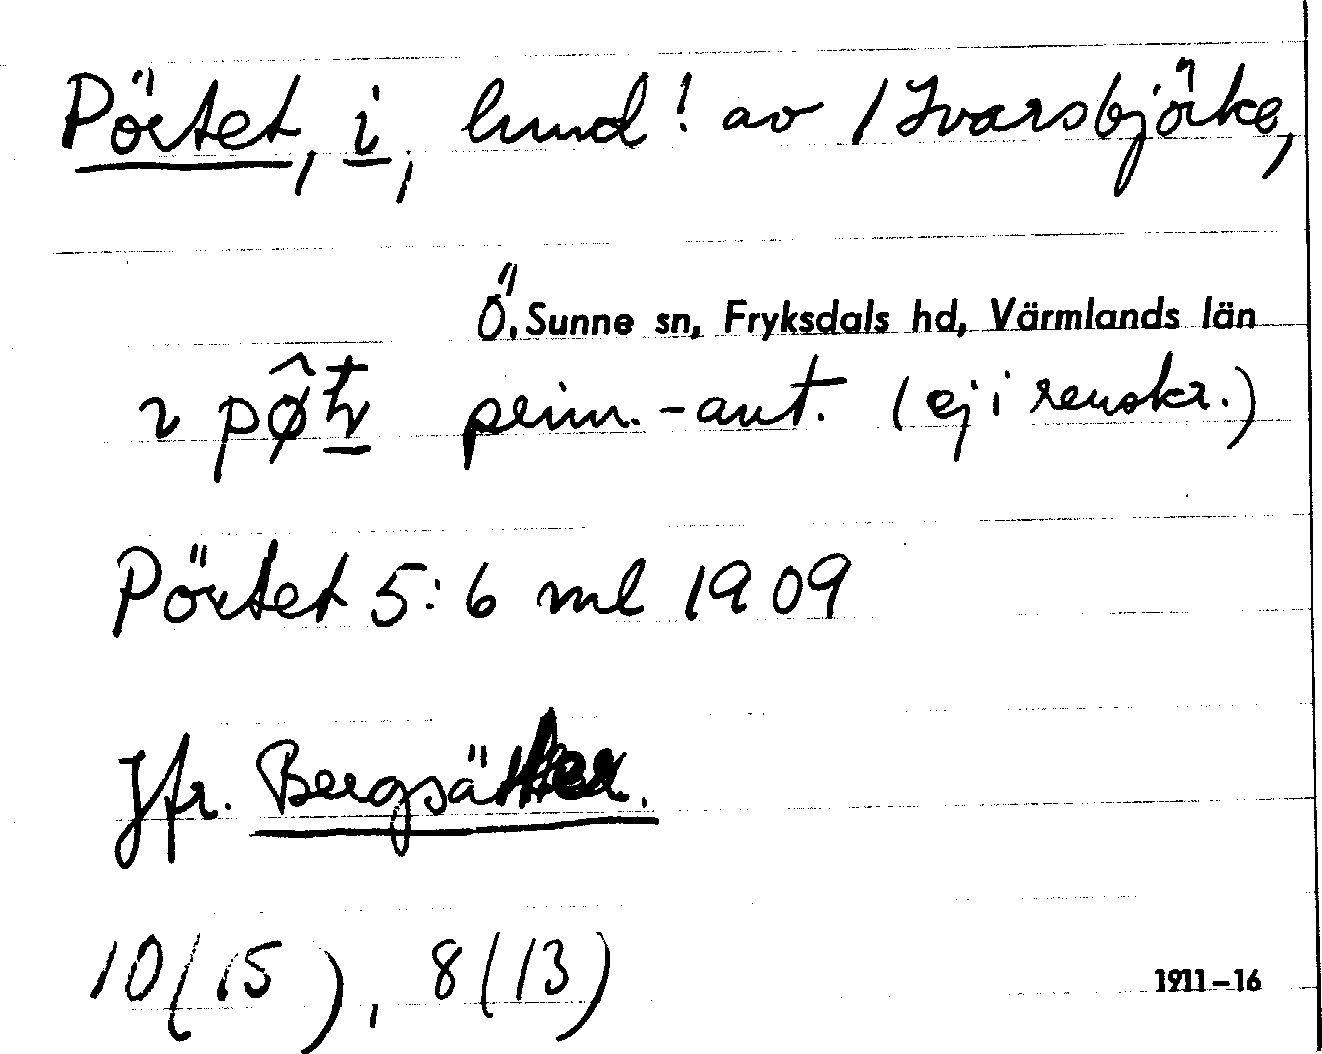 Pörtet, i, lund! av / Ivarsbjörke,
Ö. Sunne sn, Fryksdals hd, Värmlands län
prim.-ant. (ej i renskr.)
Pörtet 5:6 ml 1909
Jfr. Bergsätter.
10(15), 8(13)
1911–16